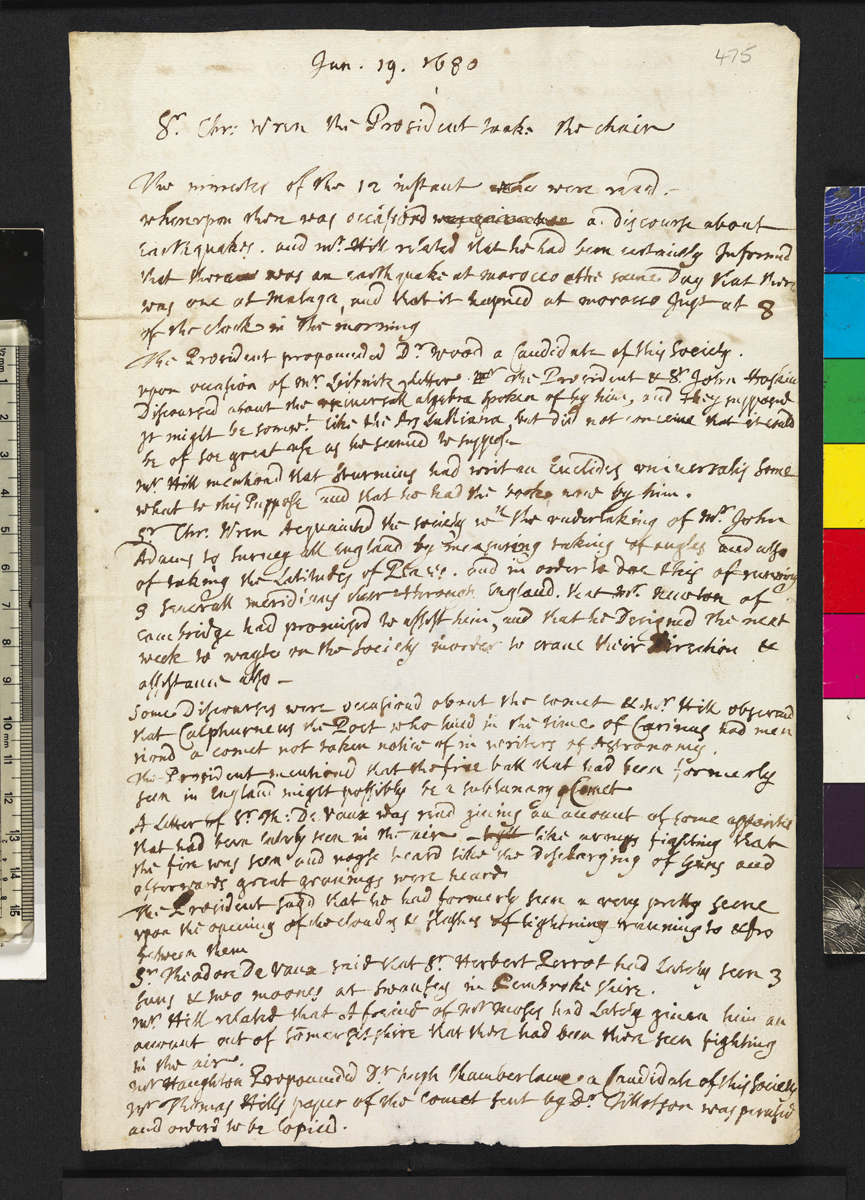 Jan. 19. 1680
475
Sr. Chr: Wren the President took the chair
The minutes of the 12 instant were read.
whereupon there was occasiond a discourse about
Earthquakes. and mr. Hill related that he had been certainly Informed
that there was an earthquake at marocco the same Day that there
was one at Malaga, and that it hapned at morocco Just at 8
of the clock in the morning
The President propounded Dr. Wood a Candidate of this Society.
upon occasion of mr. Leibnitz letter the President & Sr. John Hoskins
Discoursed about the universall algebra spoken of by him, and they supposed
It might be somwt. like the Ars Lulliana, but did not conceive that it could
be of soe great use as he seemd to suppose
mr Hill mentiond that Sturmius had writ an Euclides universalis some
what to this Purpose and that he had the book now by him.
Sr. Chr. Wren Acquainted the society wth. the undertaking of Mr. John
Adams to survey all England by measuring taking of angles and also
of taking the Latitudes of Places. and in order to doe this of running
3 severall meridians through England. that mr. Newton of
Cambridge had promised to assist him, and that he Designed the next
week to wayte on the Society in order to crave their Direction &
assistance also -
Some Discourses were occasiond about the comet & mr. Hill observed
that Calphurneus the Poet who lived in the time of Carinus had men
tiond a comet not taken notice of in writers of Astronomy.
the President mentiond that the fire ball that had been formerly
seen in England might possibly be a sublunary Comet
A Letter of Sr. Th: De Vaux was read giving an account of some
that had been lately seen in the air like armys fighting that
the fire was seen and noyse heard like the Discharging of Guns and
afterwards great groanings were heard
The President sayd that he had formerly seen a very pretty scene
upon the opening of the clouds & flashes of lightning running to & fro
between them
Sr. Theodore De Vaux said that Sr. Herbert Perrot had Lately seen 3
suns & two moones at Swansey in Pembroke shire.
mr. Hill related that A freind of mr moses had Lately given him an
account out of somersetshire that there had been there seen fighting
in the air.
mr Houghton Propounded Dr. Hugh Chamberlaine a Candidate of this Society
mr Thomas Hills paper of the comet sent by Dr. Tillotson was perused
and orderd to be Copied.